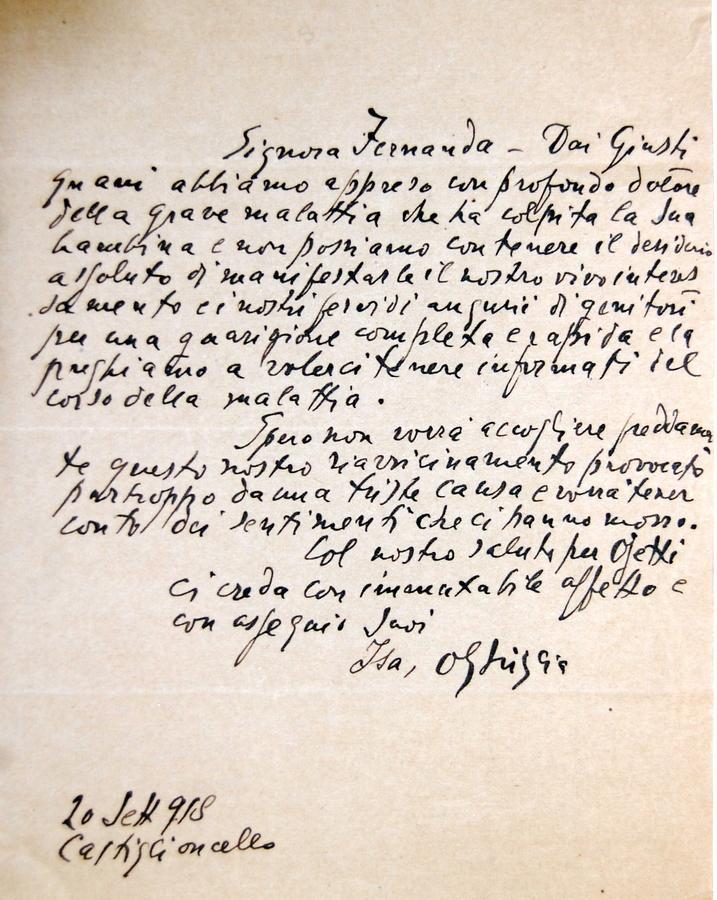 Signora Fernanda – Dai Giusti
Gnani abbiamo appreso con profondo dolore
della grave malattia che ha colpita la Sua
bambina e non possiamo contenere il desiderio
assoluto di manifestarle il nostro vivo interes
samento e i nostri fervidi augurii di genitori
per una guarigione completa e rapida e la
preghiamo a volerci tenere informati del
corso della malattia.
Spero non vorrà accogliere freddamen
te questo nostro riavvicinamento provocato
purtroppo da una triste causa e vorrà tener
conto dei sentimenti che ci hanno mosso.
Col nostro saluto per Ojetti
ci creda con immutabile affetto e
con ossequio Suoi
Isa,
20 Sett 918
Castiglioncello